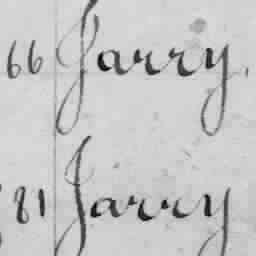 66 Jarry.
81 Jarry